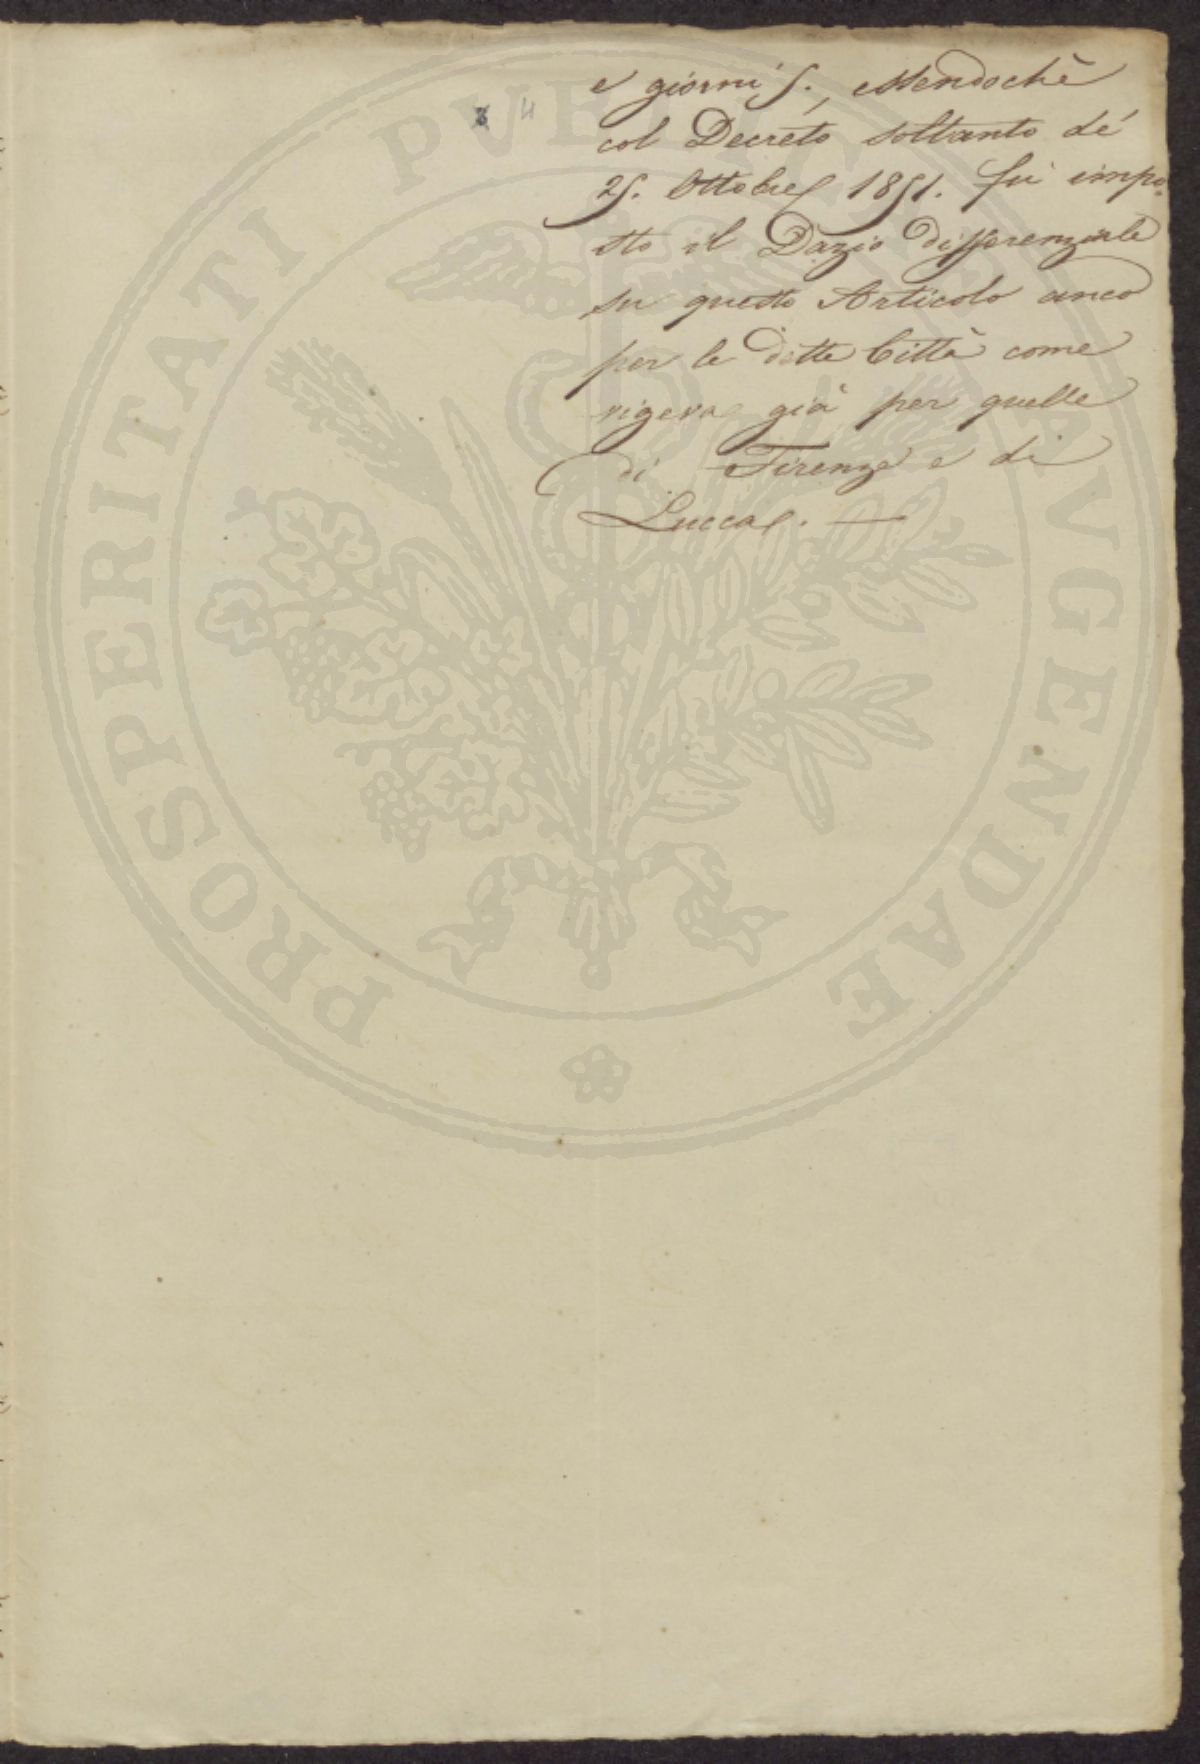 3 4
e giorni 5., essendochè
col Decreto soltanto de'
25. Ottobre 1851. fu impo-
sto il Dazio differenziale
su questo Articolo anco
per le dette Città come
vigeva già per quelle
di Firenze e di
Lucca. —
PROSPERITATI PVBLICAE AVGENDAE